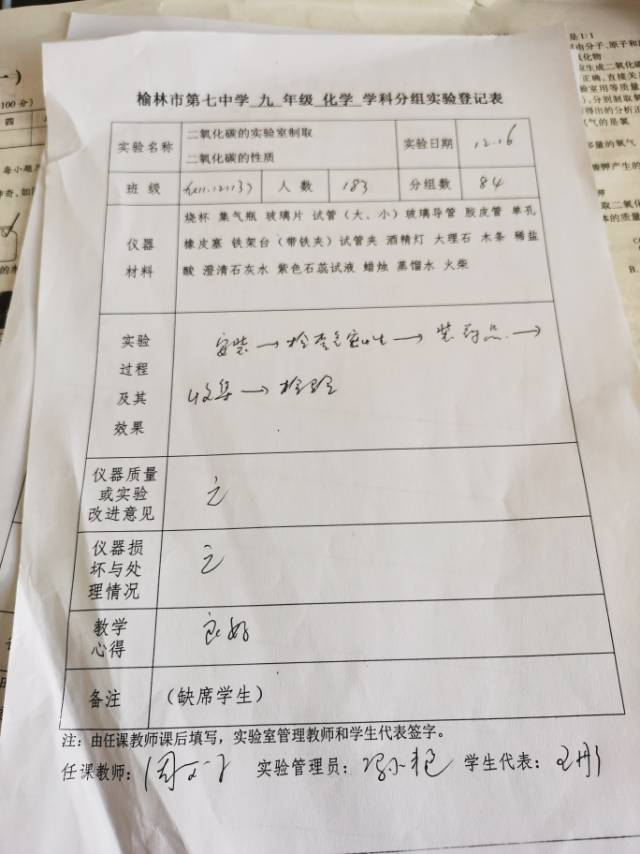 榆林市第七中学 九 年级 化学 学科分组实验登记表
实验名称 二氧化碳的实验室制取
二氧化碳的性质 实验日期 12.16
班 级 人 数 183 分组数 84
仪器
材料 烧杯 集气瓶 玻璃片 试管（大、小）玻璃导管 胶皮管 单孔
橡皮塞 铁架台（带铁夹）试管夹 酒精灯 大理石 木条 稀盐
酸 澄清石灰水 紫色石蕊试液 蜡烛 蒸馏水 火柴
实验
过程
及其
效果 安装→检查气密性→装药品→
收集→检验
仪器质量
或实验
改进意见 无
仪器损
坏与处
理情况 无
教学
心得 良好
备注 （缺席学生）
注：由任课教师课后填写，实验室管理教师和学生代表签字。
任课教师： 实验管理员： 学生代表：